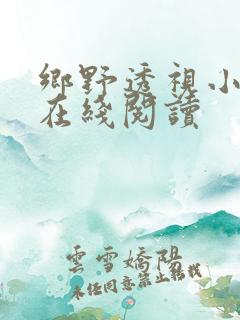 鄉野透視小
在綫閱讀
雲雪嬌陽
未經同意禁止轉載